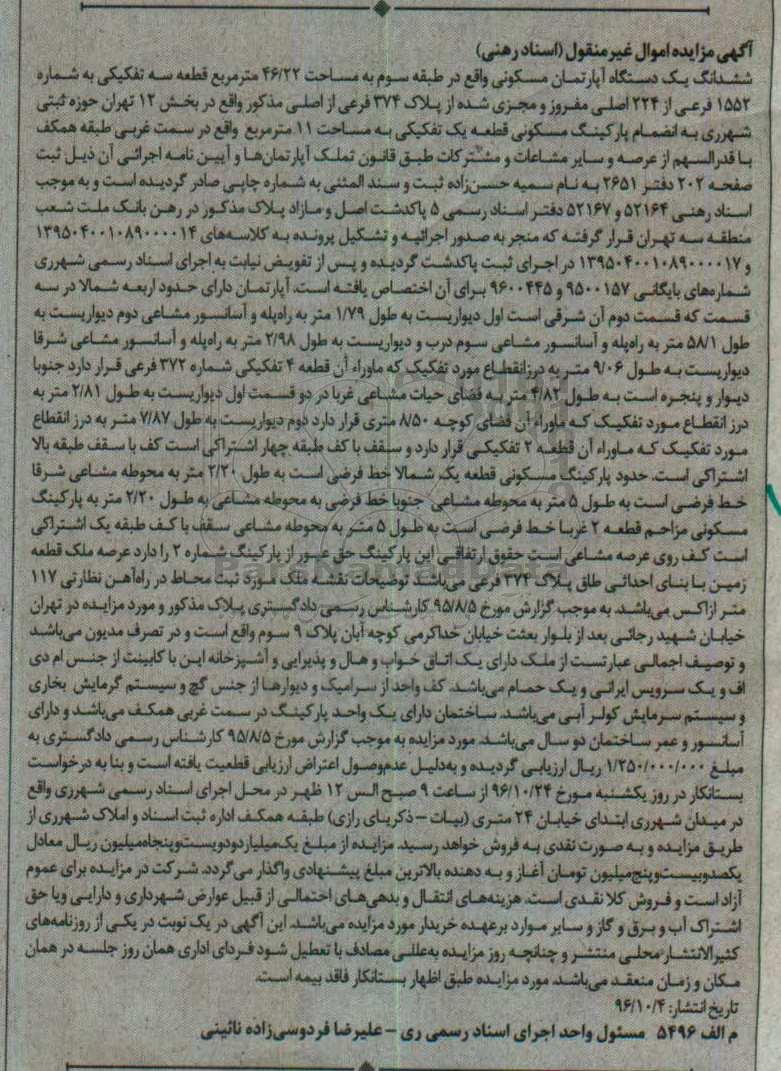 آگهی مزایده اموال غیرمنقول (اسناد رهنی)
ششدانگ یک دستگاه آپارتمان مسکونی واقع در طبقه سوم به مساحت ۴۶/۲۲ مترمربع قطعه سه تفکیکی به شماره
۱۵۵۲ فرعی از ۲۲۴ اصلی مفروز و مجزی شده از پلاک ۳۷۴ فرعی از اصلی مذکور واقع در بخش ۱۲ تهران حوزه ثبتی
شهرری به انضمام پارکینگ مسکونی قطعه یک تفکیکی به مساحت ۱۱ مترمربع واقع در سمت غربی طبقه همکف
با قدرالسهم از عرصه و سایر مشاعات و مشترکات طبق قانون تملک آپارتمان‌ها و آیین نامه اجرائی آن ذیل ثبت
صفحه ۲۰۲ دفتر ۲۶۵۱ به نام سمیه حسن‌زاده ثبت و سند المثنی به شماره چاپی صادر گردیده است و به موجب
اسناد رهنی ۵۲۱۶۴ و ۵۲۱۶۷ دفتر اسناد رسمی ۵ پاکدشت اصل و مازاد پلاک مذکور در رهن بانک ملت شعب
منطقه سه تهران قرار گرفته که منجر به صدور اجرائیه و تشکیل پرونده به کلاسه‌های ۱۳۹۵۰۴۰۰۱۰۸۹۰۰۰۰۱۴
و ۱۳۹۵۰۴۰۰۱۰۸۹۰۰۰۰۱۷ در اجرای ثبت پاکدشت گردیده و پس از تفویض نیابت به اجرای اسناد رسمی شهرری
شماره‌های بایگانی ۹۵۰۰۱۵۷ و ۹۶۰۰۴۴۵ برای آن اختصاص یافته است. آپارتمان دارای حدود اربعه شمالا در سه
قسمت که قسمت دوم آن شرقی است اول دیواریست به طول ۱/۷۹ متر به راه‌پله و آسانسور مشاعی دوم دیواریست به
طول ۵۸/۱ متر به راه‌پله و آسانسور مشاعی سوم درب و دیواریست به طول ۲/۹۸ متر به راه‌پله و آسانسور مشاعی شرقا
دیواریست به طول ۹/۰۶ متر به درزانقطاع مورد تفکیک که ماوراء آن قطعه ۴ تفکیکی شماره ۳۷۲ فرعی قرار دارد جنوبا
دیوار و پنجره است به طول ۴/۸۲ متر به فضای حیات مشاعی غربا در دو قسمت اول دیواریست به طول ۲/۸۱ متر به
درز انقطاع مورد تفکیک که ماوراء آن فضای کوچه ۸/۵۰ متری قرار دارد دوم دیواریست به طول ۷/۸۷ متر به درز انقطاع
مورد تفکیک که ماوراء آن قطعه ۲ تفکیکی قرار دارد و سقف با کف طبقه چهار اشتراکی است کف با سقف طبقه بالا
اشتراکی است. حدود پارکینگ مسکونی قطعه یک، شمالا خط فرضی است به طول ۲/۲۰ متر به محوطه مشاعی شرقا
خط فرضی است به طول ۵ متر به محوطه مشاعی جنوبا خط فرضی به محوطه مشاعی به طول ۲/۲۰ متر به پارکینگ
مسکونی مزاحم قطعه ۲ غربا خط فرضی است به طول ۵ متر به محوطه مشاعی سقف با کف طبقه یک اشتراکی
است کف روی عرصه مشاعی است حقوق ارتفاقی این پارکینگ حق عبور از پارکینگ شماره ۲ را دارد عرصه ملک قطعه
زمین با بنای احداثی طاق پلاک ۳۷۴ فرعی می‌باشد توضیحات نقشه ملک مورد ثبت محاط در راه‌آهن نظارتی ۱۱۷
متر ازاکس می‌باشد. به موجب گزارش مورخ ۹۵/۸/۵ کارشناس رسمی دادگستری پلاک مذکور و مورد مزایده در تهران
خیابان شهید رجائی بعد از بلوار بعثت خیابان خداکرمی کوچه آبان پلاک ۹ سوم واقع است و در تصرف مدیون می‌باشد
و توصیف اجمالی عبارتست از ملک دارای یک اتاق خواب و هال و پذیرایی و آشپزخانه اپن با کابینت از جنس ام دی
اف و یک سرویس ایرانی و یک حمام می‌باشد. کف واحد از سرامیک و دیوارها از جنس گچ و سیستم گرمایش بخاری
و سیستم سرمایش کولر آبی می‌باشد. ساختمان دارای یک واحد پارکینگ در سمت غربی همکف می‌باشد و دارای
آسانسور و عمر ساختمان دو سال می‌باشد. مورد مزایده به موجب گزارش مورخ ۹۵/۸/۵ کارشناس رسمی دادگستری به
مبلغ ۱/۲۵۰/۰۰۰/۰۰۰ ریال ارزیابی گردیده و به‌دلیل عدم‌وصول اعتراض ارزیابی قطعیت یافته است و بنا به درخواست
بستانکار در روز یکشنبه مورخ ۹۶/۱۰/۲۴ از ساعت ۹ صبح الی ۱۲ ظهر در محل اجرای اسناد رسمی شهرری واقع
در میدان شهرری ابتدای خیابان ۲۴ متری (بیات – ذکریای رازی) طبقه همکف اداره ثبت اسناد و املاک شهرری از
طریق مزایده و به صورت نقدی به فروش خواهد رسید. مزایده از مبلغ یک‌میلیاردودویست‌وپنجاه‌میلیون ریال معادل
یکصدوبیست‌وپنج‌میلیون تومان آغاز و به دهنده بالاترین مبلغ پیشنهادی واگذار می‌گردد. شرکت در مزایده برای عموم
آزاد است و فروش کلا نقدی است. هزینه‌های انتقال و بدهی‌های احتمالی از قبیل عوارض شهرداری و دارایی ویا حق
اشتراک آب و برق و گاز و سایر موارد برعهده خریدار مورد مزایده می‌باشد. این آگهی در یک نوبت در یکی از روزنامه‌های
کثیرالانتشار محلی منتشر و چنانچه روز مزایده به‌عللی مصادف با تعطیل شود فردای اداری همان روز جلسه در همان
مکان و زمان منعقد می‌باشد. مورد مزایده طبق اظهار بستانکار فاقد بیمه است.
تاریخ انتشار: ۹۶/۱۰/۴
م الف ۵۴۹۶ مسئول واحد اجرای اسناد رسمی ری – علیرضا فردوسی‌زاده نائینی